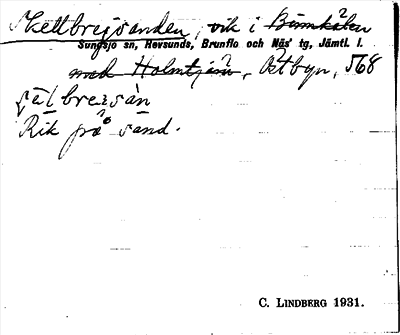 Skettbrejsanden, vik i Bimkälen ?
Sungsjö sn, Revsunds, Brunflo och Näs' tg, Jämtl. l.
med Holmtjärn ?, Östbyn, 568
Rik på sand.
C. LINDBERG 1931.